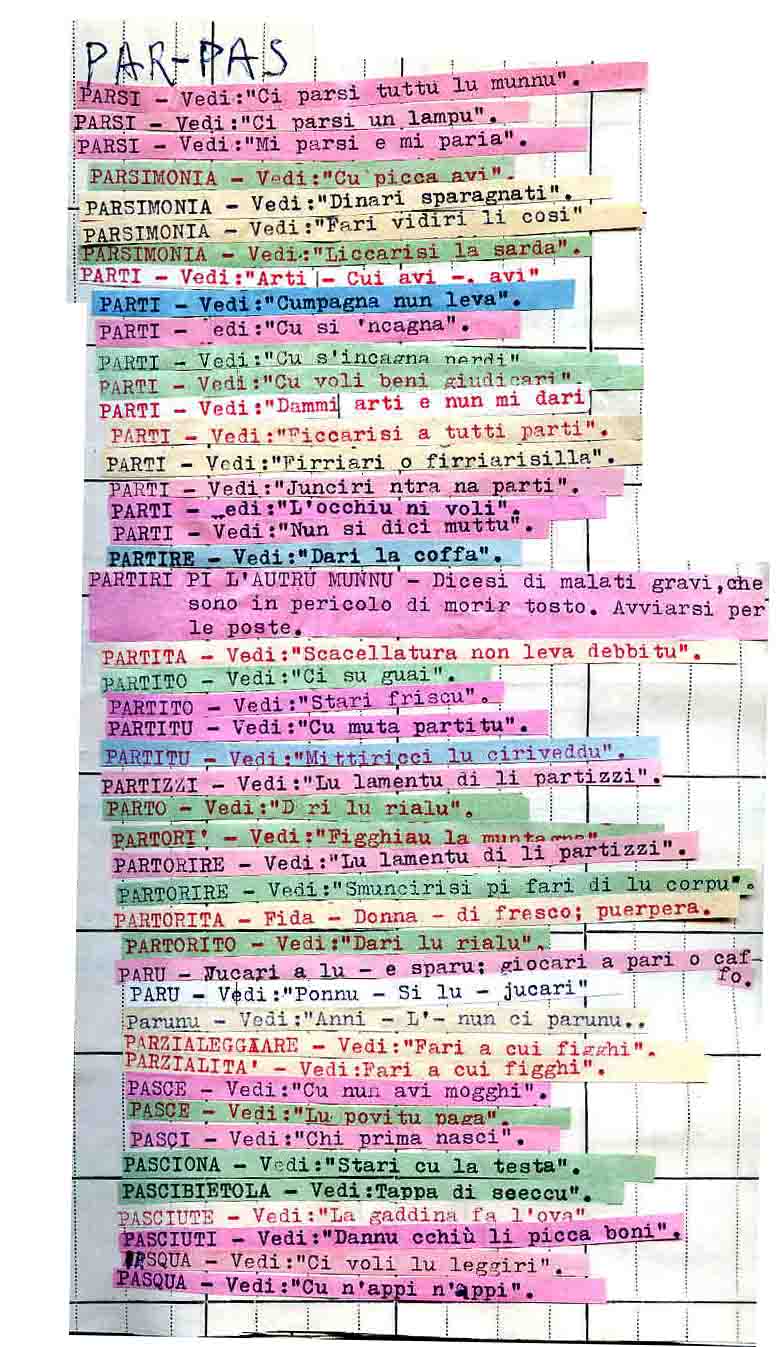 PAR-PAS
PARSI - Vedi:"Ci parsi tuttu lu munnu".
PARSI - Vedi:"Ci parsi un lampu".
PARSI - Vedi:"Mi parsi e mi paria".
PARSIMONIA - Vedi:"Cu picca avi".
PARSIMONIA - Vedi:"Dinari sparagnati".
PARSIMONIA - Vedi:"Fari vidiri li cosi"
PARSIMONIA - Vedi:"Liccarisi la sarda".
PARTI - Vedi:"Arti - Cui avi -. avi"
PARTI - Vedi:"Cumpagna nun leva".
PARTI - edi:"Cu si 'ncagna".
PARTI - Vedi:"Cu s'incagna perdi"
PARTI - Vedi:"Cu voli beni giudicari".
PARTI - Vedi:"Dammi arti e nun mi dari
PARTI - Vedi:"Ficcarisi a tutti parti".
PARTI - Vedi:"Firriari o firriarisilla".
PARTI - Vedi:"Junciri ntra na parti".
PARTI - edi:"L'occhiu ni voli".
PARTI - Vedi:"Nun si dici muttu".
PARTIRE - Vedi:"Dari la coffa".
PARTIRI PI L'AUTRU MUNNU - Dicesi di malati gravi,che
sono in pericolo di morir tosto. Avviarsi per
le poste.
PARTITA - Vedi:"Scacellatura non leva debbitu".
PARTITO - Vedi:"Ci su guai".
PARTITO - Vedi:"Stari friscu".
PARTITU - Vedi:"Cu muta partitu".
PARTITU - Vedi:"Mittiricci lu ciriveddu".
PARTIZZI - Vedi:"Lu lamentu di li partizzi".
PARTO - Vedi:"D ri lu rialu".
PARTORI' - Vedi:"Figghiau la muntagna"
PARTORIRE - Vedi:"Lu lamentu di li partizzi".
PARTORIRE - Vedi:"Smuncirisi pi fari di lu corpu".
PARTORITA - Fida - Donna - di fresco; puerpera.
PARTORITO - Vedi:"Dari lu rialu".
PARU - Jucari a lu - e sparu; giocari a pari o caf-
fo.
PARU - Vedi:"Ponnu - Si lu - jucari"
Parunu - Vedi:"Anni - L'- nun ci parunu..
PARZIALEGGAARE - Vedi:"Fari a cui figghi".
PARZIALITA' - Vedi:Fari a cui figghi".
PASCE - Vedi:"Cu nun avi mogghi".
PASCE - Vedi:"Lu povitu paga".
PASCI - Vedi:"Chi prima nasci".
PASCIONA - Vedi:"Stari cu la testa".
PASCIBIETOLA - Vedi:Tappa di seeccu".
PASCIUTE - Vedi:"La gaddina fa l'ova"
PASCIUTI - Vedi:"Dannu cchiù li picca boni".
PASQUA - Vedi:"Ci voli lu leggiri".
PASQUA - Vedi:"Cu n'appi n'appi".